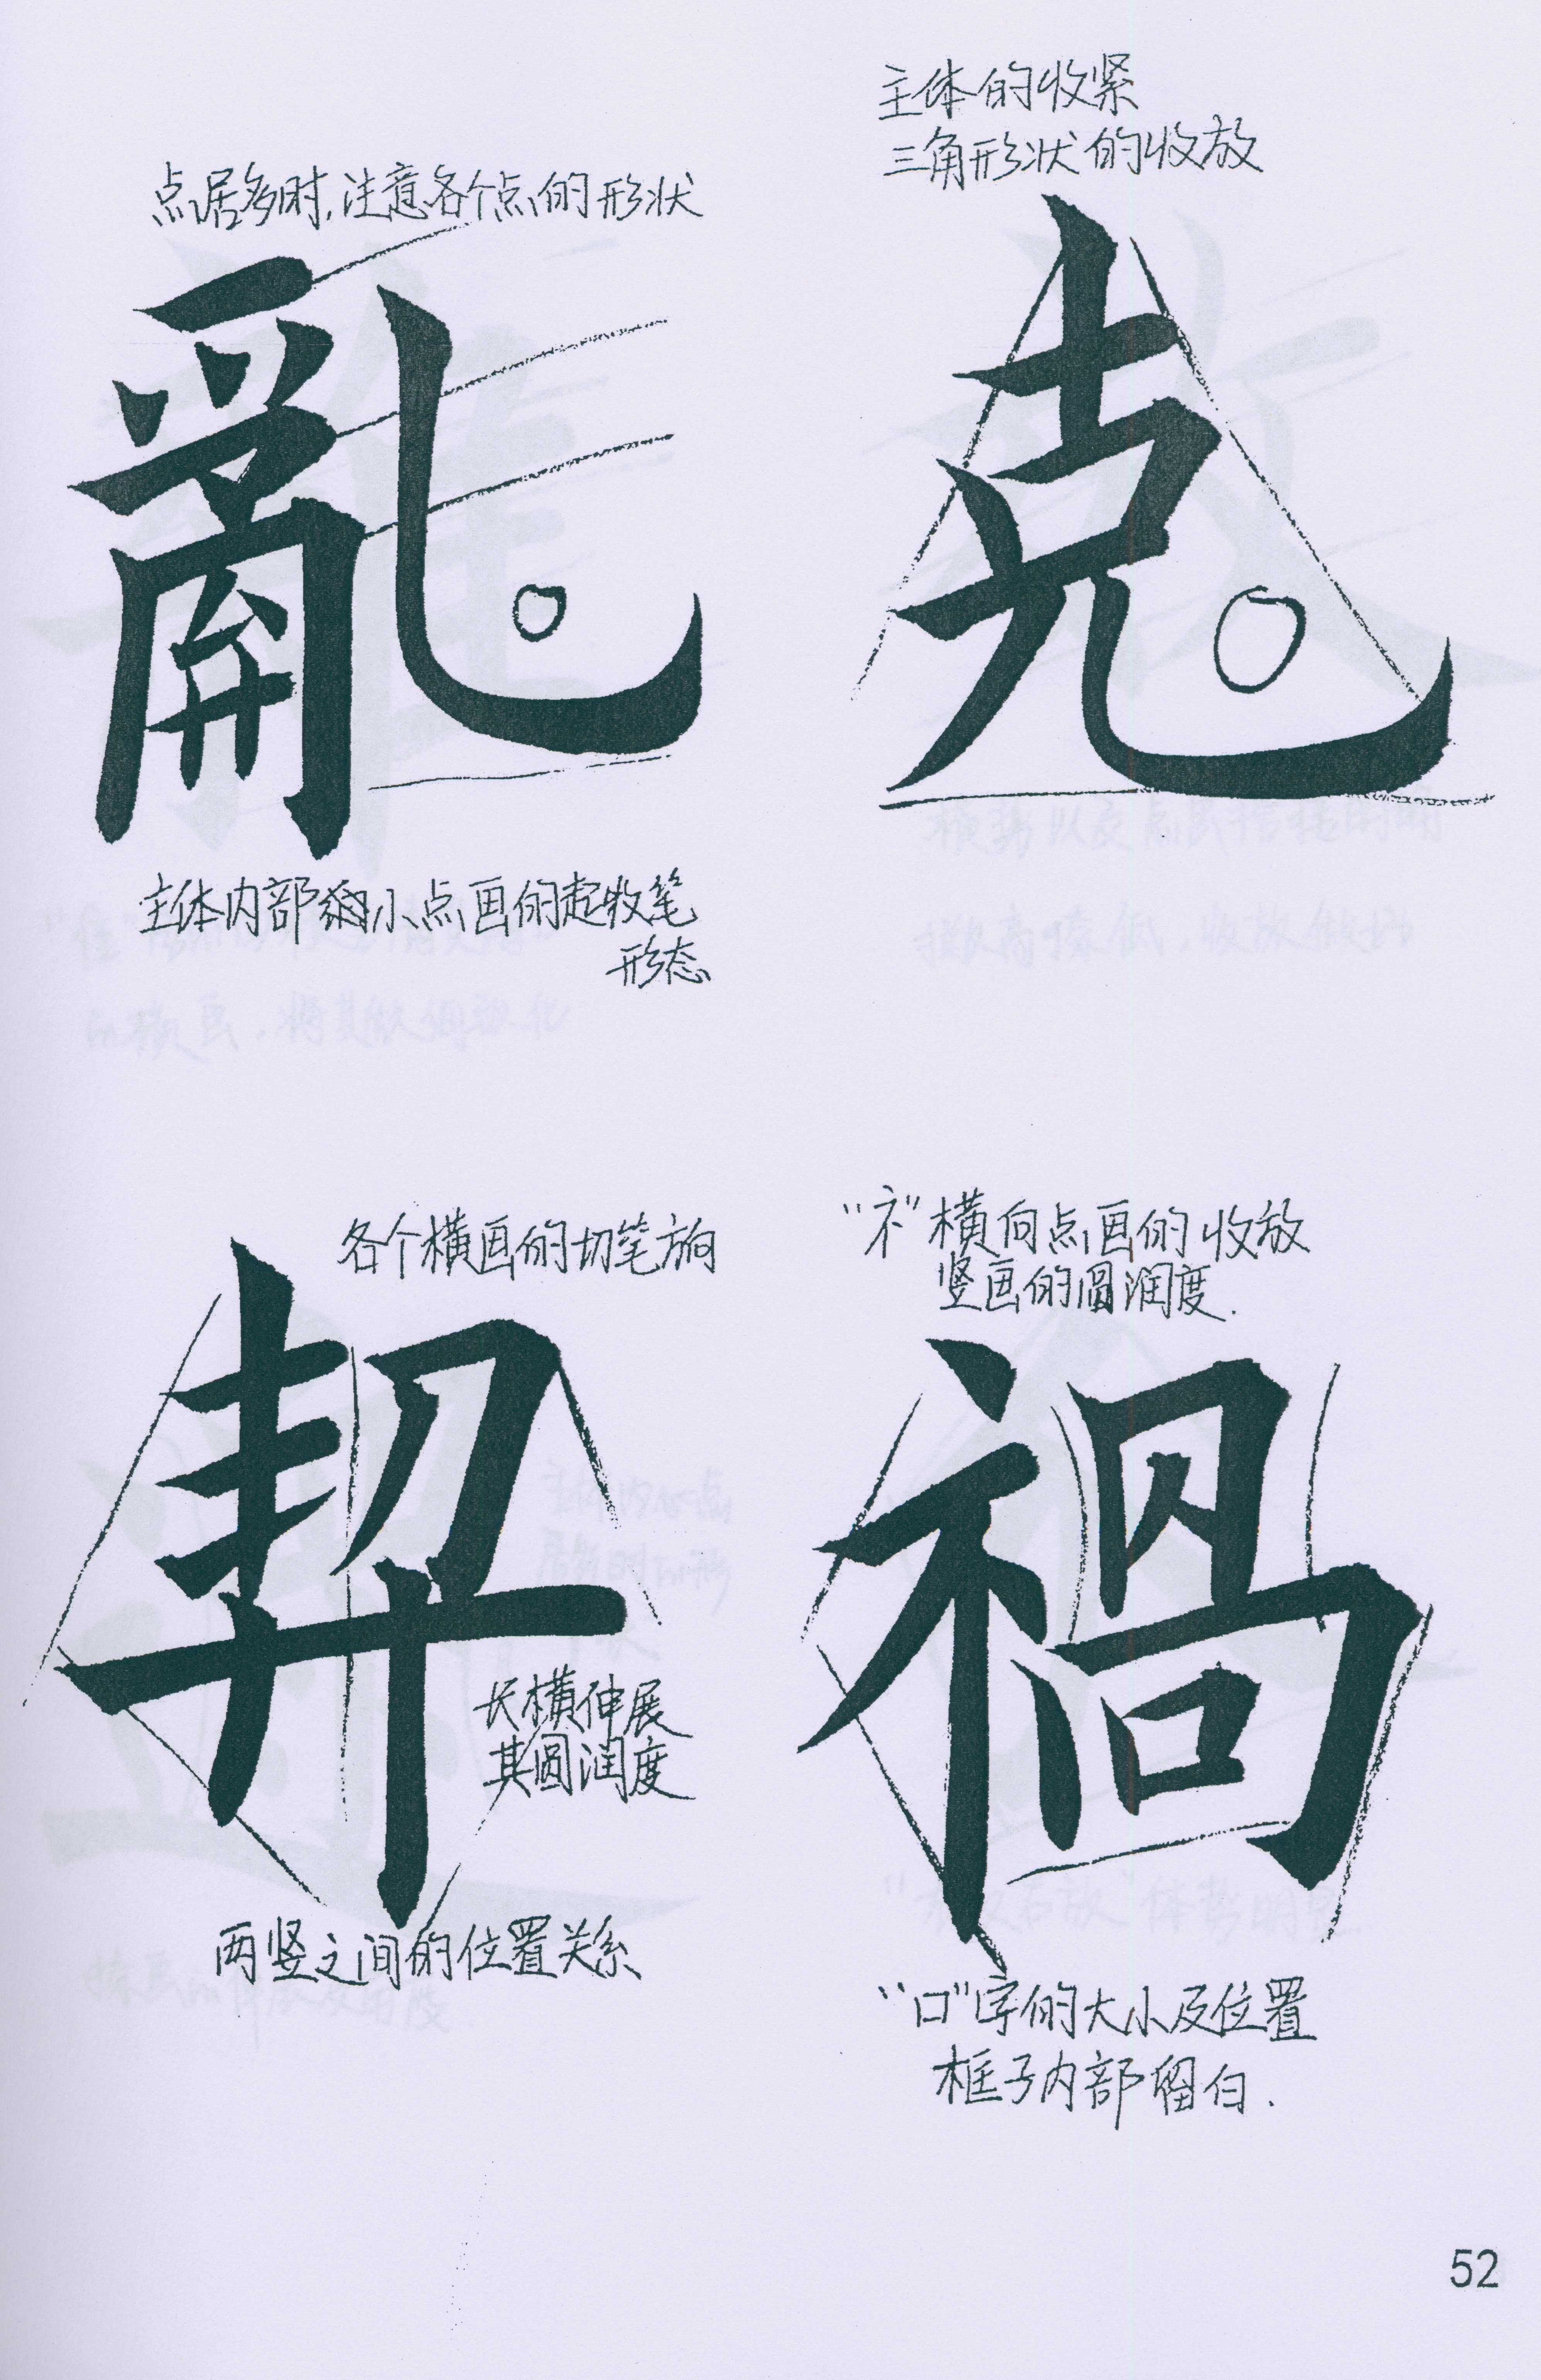 点居多时,注意各个点的形状
亂
主体内部的小点画的起收笔
形态
主体的收紧
三角形状的收放
克
各个横画的切笔方向
契
长横伸展
其圆润度
两竖之间的位置关系
“礻”横向点画的收放
竖画的圆润度.
禍
“口”字的大小及位置
框子内部留白.
52